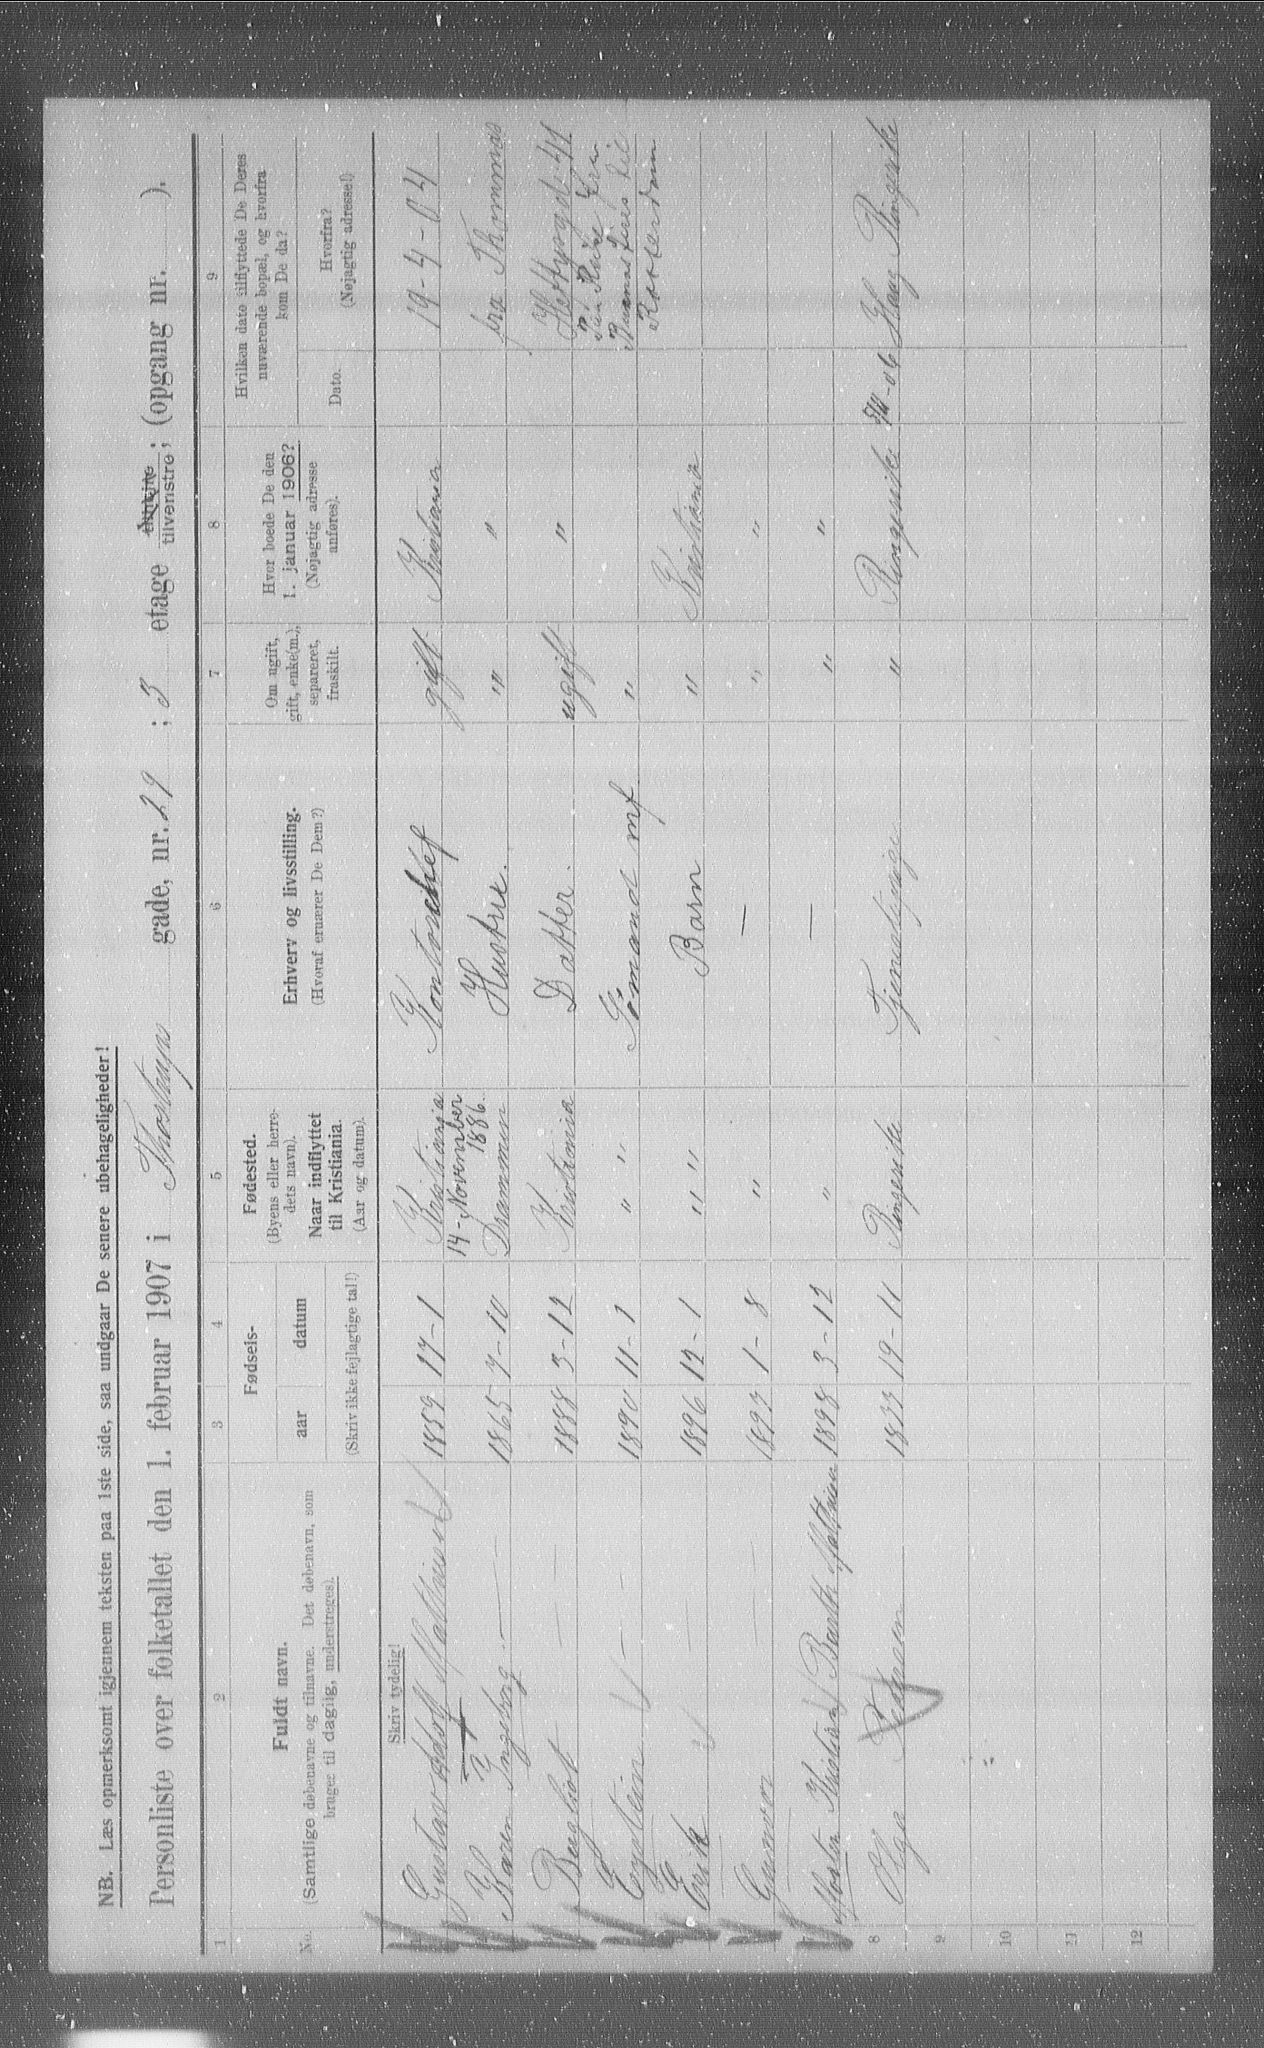 NB. Læs opmerksomt igjennem teksten paa 1ste side, saa undgaar De senere ubehageligheder!
Personliste over folketallet den 1. februar 1907 i Thostrups gade, nr. 29 ; 3 etage tilhøire tilvenstre; (opgang nr. ).
1 2 3 4 5 6 7 8 9
No. Fuldt navn. (Samtlige døbenavne og tilnavne. Det døbenavn, som bruges til daglig, understreges).
Fødsels- aar datum (Skriv ikke fejlagtige tal!)
Fødested. (Byens eller herredets navn). Naar indflyttet til Kristiania. (Aar og datum).
Erhverv og livsstilling. (Hvoraf ernærer De Dem?)
Om ugift, gift, enke(m.), separeret, fraskilt.
Hvor boede De den 1. januar 1906? (Nøjagtig adresse anføres).
Hvilken dato tilflyttede De Deres nuværende bopæl, og hvorfra kom De da?
Dato. Hvorfra? (Nøjagtig adresse!)
Skriv tydelig!
Gustav Adolf 1859 17-1 Kristiania Kontorchef gift Kristiania 19-4-04
14-November 1886.
Karen Ingeborg — 1865 7-10 Drammen Hustru. " " fra Thommas
Bergliot — — 1888 3-12 Kristiania Datter. ugift " 41
Eystein — — 1890 11-1 " " Sømand "
Erik — 1896 12-1 " " Barn " Kristiania
Gunvor — 1893 1-8 " — " "
Morten Kristian Barth Matthiesen 1898 3-12 " — " "
8 Olga Pedersen 1833 19-11 Ringerike Tjenestepige " Ringerike Haug Ringerike
9
10
11
12